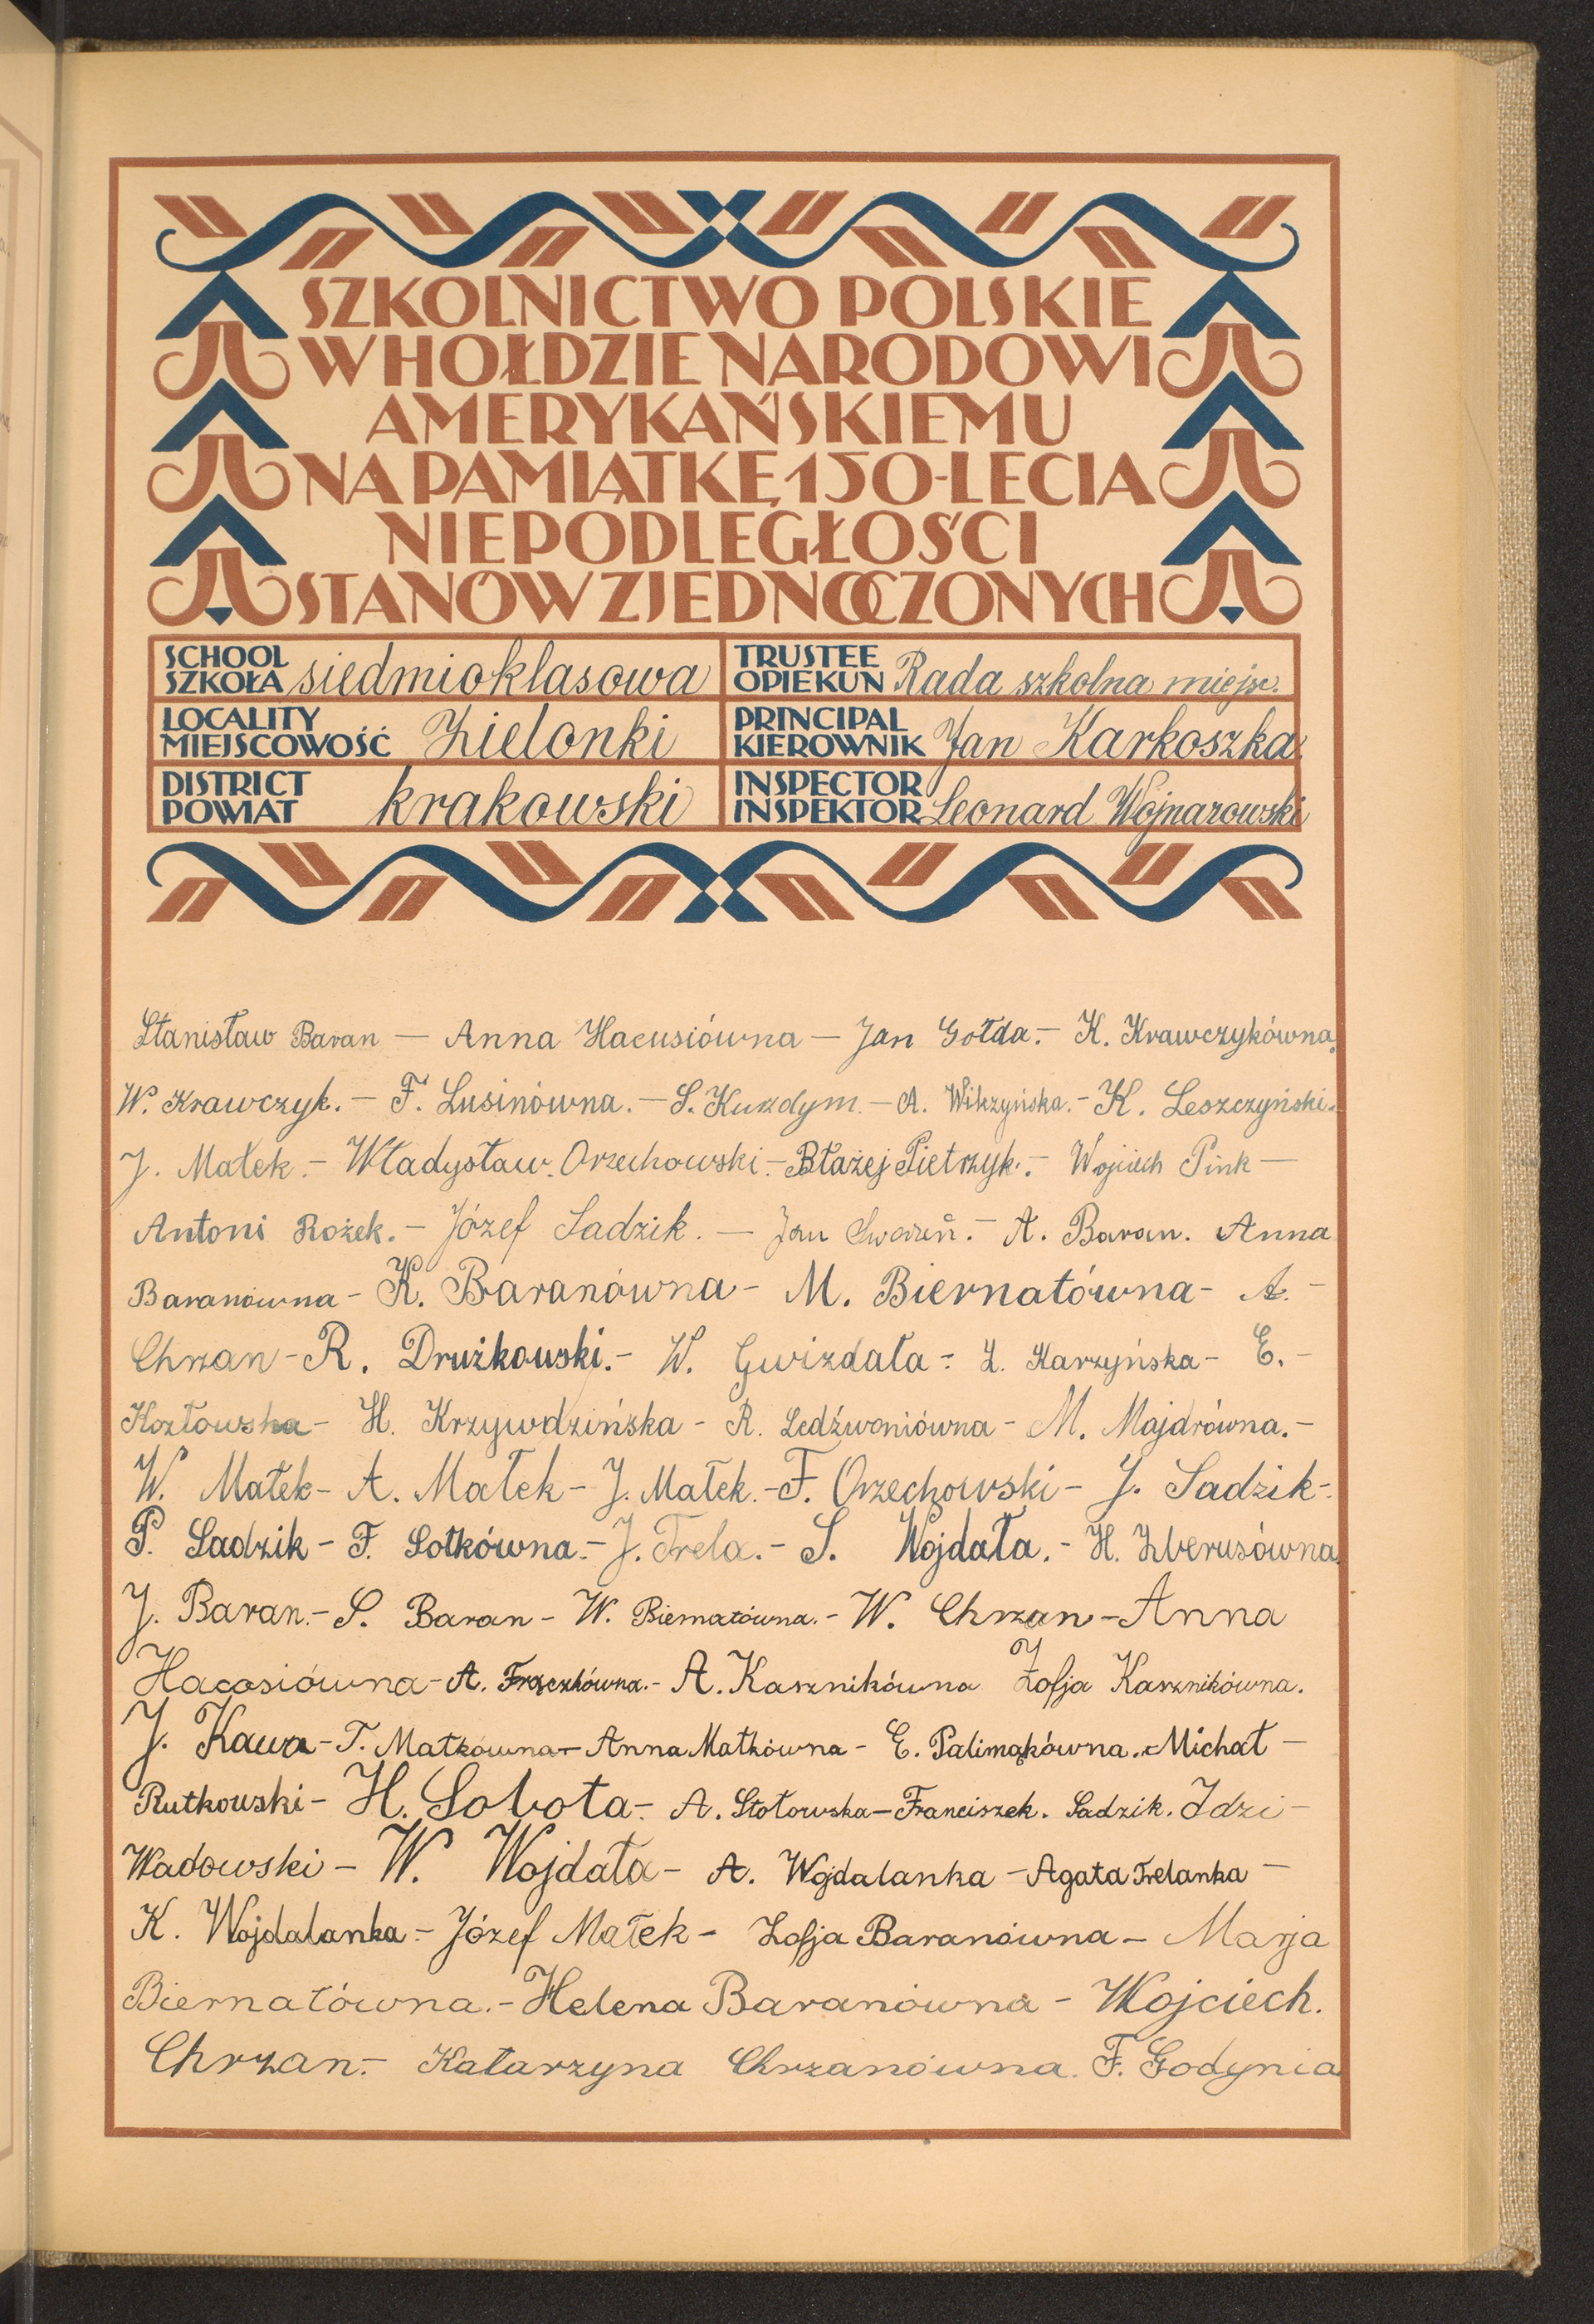 SZKOLNICTWO POLSKIE
W HOŁDZIE NARODOWI
AMERYKAŃSKIEMU
NA PAMIĄTKĘ 150-LECIA
NIEPODLEGŁOŚCI
STANÓW ZJEDNOCZONYCH
SCHOOL SZKOŁA siedmioklasowa
TRUSTEE OPIEKUN Rada szkolna miejsc.
LOCALITY MIEJSCOWOŚĆ Zielonki
PRINCIPAL KIEROWNIK Jan Karkoszka
DISTRICT POWIAT krakowski
INSPECTOR INSPEKTOR Leonard Wojnarowski
Stanisław Baran — Anna Hacusiówna — Jan Gołda. — K. Krawczykówna.
W. Krawczyk. — F. Lusinówna. — S. Kurdym — A. Wilczyńska. — K. Leszczyński.
J. Małek. — Władysław Orzechowski — Błażej Pietrzyk. — Wojciech Pink —
Antoni Rożek. — Józef Sadzik. — Jan — A. Baran. Anna
Baranówna — K. Baranówna — M. Biernatówna — A. —
Chrzan — R. Drużkowski. — W. Gwizdała — Z. Karzyńska — E. —
Kozłowska — H. Krzywdzińska — R. Ledźwoniówna — M. Majdrówna. —
W. Małek — A. Małek — J. Małek. — F. Orzechowski — J. Sadzik —
P. Sadzik — F. Sołkówna. — J. Trela. — S. Wojdała. — H. Zberusówna.
J. Baran. — S. Baran — W. Biernatówna. — W. Chrzan — Anna
Hacosiówna — A. Frączkówna. — A. Kasznikówna Zofja Kasznikówna.
J. Kawa — T. Małkówna — Anna Małkówna — E. Palimąkówna. Michał —
Rutkowski — H. Sobota — A. Stotowska — Franciszek. Sadzik. Idzi —
Wadowski — W. Wojdała — A. Wojdalanka — Agata Trelanka —
K. Wojdalanka — Józef Małek — Zofja Baranówna — Marja
Biernatówna. — Helena Baranówna — Wojciech.
Chrzan. — Katarzyna Chrzanówna. F. Godynia